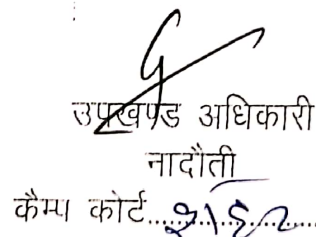 उपखण्ड अधिकारी
नादौती
कैम्प कोर्ट